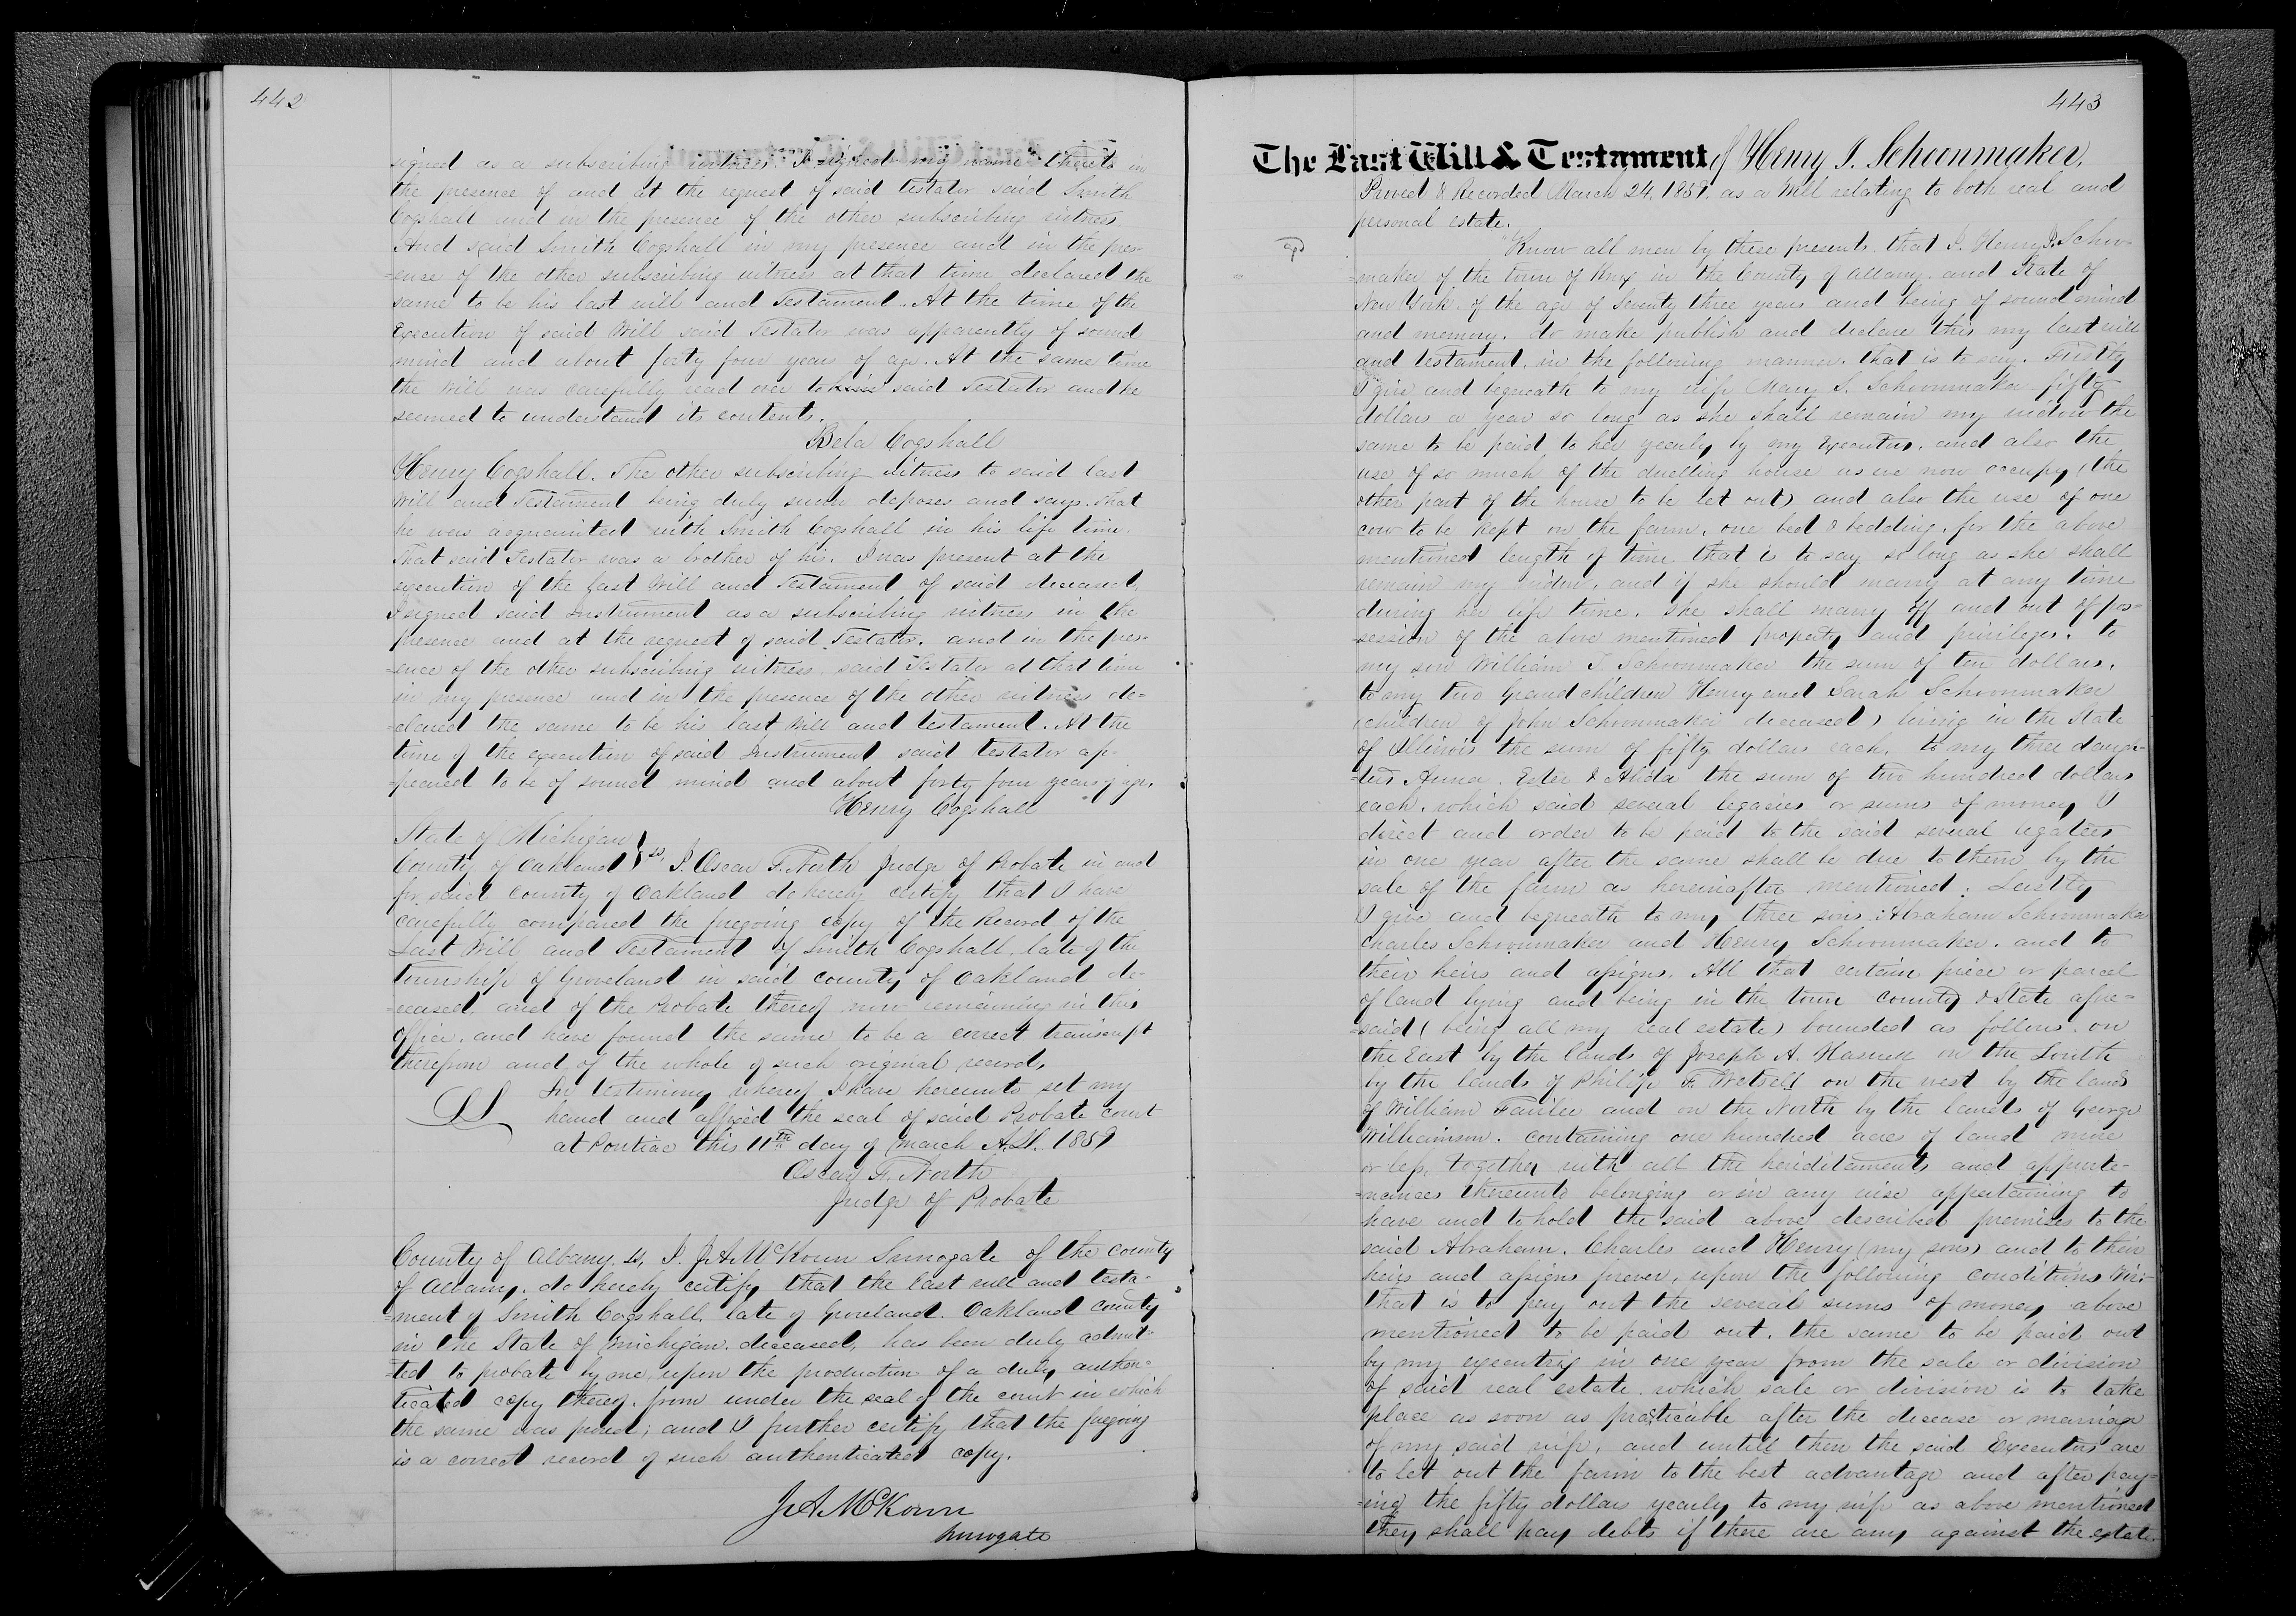 442
signed as a subscribing witness I signed my name thereto in
the presence of and at the request of said testator said Smith
Cogshall and in the presence of the other subscribing witness
And said Smith Cogshall in my presence and in the pres-
=ence of the other subscribing witness at that time declared the
same to be his last will and Testament. At the time of the
Execution of said Will said Testator was apparently of sound
mind and about forty four years of age. At the same time
the Will was carefully read over to said Testator and he
seemed to understand its contents.
Bela Cogshall
Henry Cogshall. The other subscribing witness to said last
Will and Testament being duly sworn deposes and says. that
he was acquainted with Smith Cogshall in his life time.
That said Testator was a brother of his. I was present at the
execution of the last Will and Testament of said deceased,
I signed said Instrument as a subscribing witness in the
presence and at the request of said Testator. and in the pres-
=ence of the other subscribing witness said Testator at that time
in my presence and in the presence of the other witness de=
=clared the same to be his last Will and testament. At the
time of the execution of said Instrument said testator ap-
=peared to be of sound mind and about forty four years of age.
Henry Cogshall
State of Michigan
County of Oakland } ss, I. Oscar F. North Judge of Probate in and
for said County of Oakland do hereby certify that I have
carefully compared the foregoing copy of the Record of the
Last Will and Testament of Smith Cogshall, late of the
Township of Groveland in said county of Oakland de-
=ceased, and of the Probate thereof now remaining in this
office, and have found the same to be a correct transcript
therefrom and of the whole of such original record.
LS In testimony whereof I have hereunto set my
hand and affixed the seal of said Probate court
at Pontiac this 11th day of March A.D. 1859
Oscar F. North
Judge of Probate
County of Albany. ss, I. J.A. McKown Surrogate of the County
of Albany, do hereby certify that the last will and testa-
=ment of Smith Cogshall, late of Groveland. Oakland County
in the State of Michigan. deceased, has been duly admit-
=ted to probate by me, upon the production of a duly authen=
ticated copy thereof. from under the seal of the court in which
the same was proved; and I further certify that the foregoing
is a correct record of such authenticated copy.
J.A. McKown
Surrogate
443
The Last Will & Testament of Henry I. Schoonmaker.
Proved & Recorded March 24, 1859, as a Will relating to both real and
personal estate.
Know all men by these presents. that I. Henry I. Schoo-
=maker of the town of Knox in the County of Albany. and State of
New York. of the age of Seventy three years and being of sound mind
and memory. do make publish and declare this my last will
and testament, in the following manner. that is to say. Firstly
I give and bequeath to my wife Mary S. Schoonmaker fifty
dollars a year so long as she shall remain my widow the
same to be paid to her yearly by my Executors. and also the
use of so much of the dwelling house as we now occupy, (the
other part of the house to be let out) and also the use of one
cow to be kept on the farm, one bed & bedding, for the above
mentioned length of time that is to say so long as she shall
remain my widow, and if she should marry at any time
during her life time. she shall marry off and out of pos=
=session of the above mentioned property and privileges. to
my son William T. Schoonmaker the sum of ten dollars.
to my two Grandchildren Henry and Sarah Schoonmaker
(children of John Schoonmaker deceased) living in the State
of Illinois the sum of fifty dollars each. to my three daugh-
=ters Anna. Ester & Alida the sum of two hundred dollars
each. which said several legacies or sums of money I
direct and order to be paid to the said several legatees
in one year after the same shall be due to them by the
sale of the farm as hereinafter mentioned. Lastly
I give and bequeath to my three sons. Abraham Schoonmaker
Charles Schoonmaker and Henry Schoonmaker. and to
their heirs and assigns. All that certain piece or parcel
of land lying and being in the town County & State afore=
=said (being all my real estate) bounded as follows. on
the East by the lands of Joseph A. on the South
by the lands of Philip F. Wetsell on the west by the lands
of William and on the North by the lands of George
Williamson. containing one hundred acres of land more
or less, together with all the heriditaments and appurte-
=nances thereunto belonging or in any wise appertaining to
have and to hold the said above described premises to the
said Abraham. Charles and Henry (my sons) and to their
heirs and assigns forever, upon the following conditions Viz:
that is to pay out the several sums of money above
mentioned to be paid out. the same to be paid out
by my executrix in one year from the sale or division
of said real estate. which sale or division is to take
place as soon as practicable after the decease or marriage
of my said wife, and untill then the said Executors are
to let out the farm to the best advantage and after pay=
=ing the fifty dollars yearly to my wife as above mentioned
they shall pay debts if there are any against the estate.